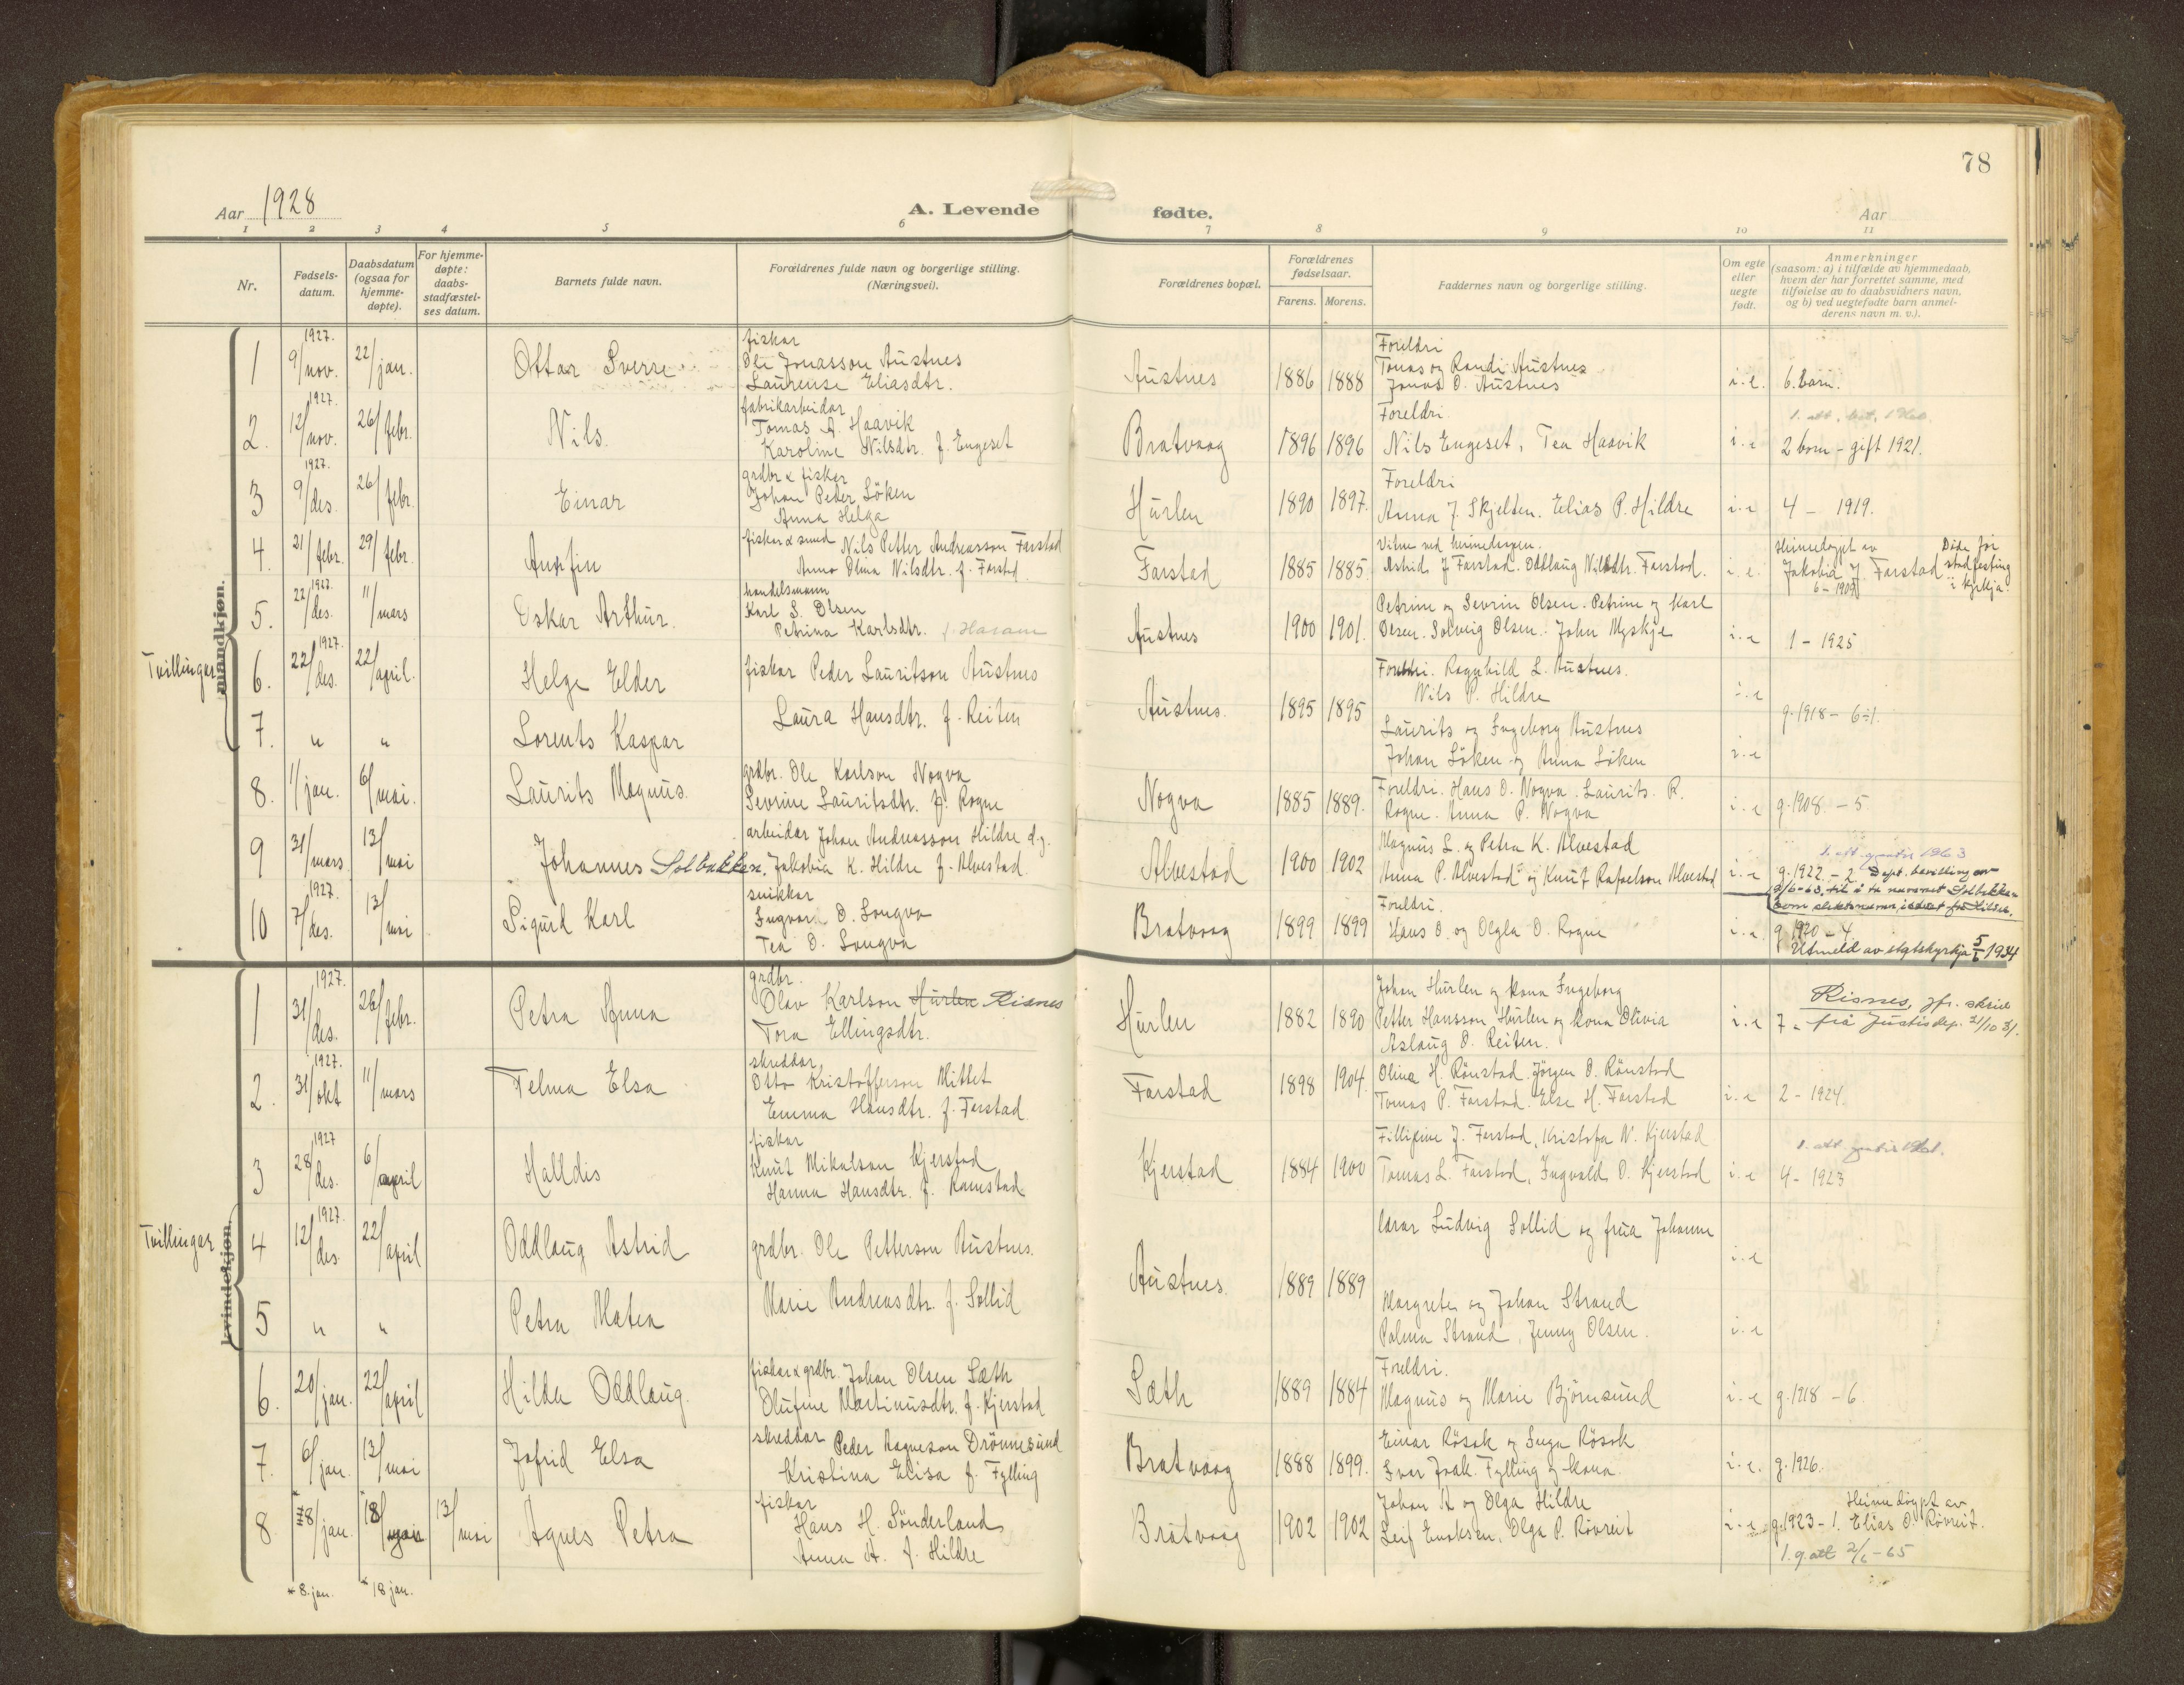 78
Aar 1928
A. Levende fødte.
Aar
1 2 3 4 5 6 7 8 9 10 11
Nr.
Fødsels-
datum.
Daabsdatum
(ogsaa for
hjemme-
døpte).
For hjemme-
døpte:
daabs-
stadfæstel-
ses datum.
Barnets fulde navn.
Forældrenes fulde navn og borgerlige stilling.
(Næringsvei).
Forældrenes bopæl.
Forældrenes
fødselsaar.
Farens. Morens.
Faddernes navn og borgerlige stilling.
Om egte
eller
uegte
født.
Anmerkninger
(saasom: a) i tilfælde av hjemmedaab,
hvem der har forrettet samme, med
tilføielse av to daabsvidners navn,
og b) ved uegtefødte barn anmel-
derens navn m. v.).
mandkjøn.
1 1927. 9/nov. 22/jan. Ottar Sverre
fiskar
Ole Jonasson Austnes
Laurense Eliasdtr.
Austnes 1886 1888
Foreldri
Tomas og Randi Austnes
Jonas O. Austnes
i. e. 6. barn.
2. 1927. 12/nov. 26/febr. Nils
fabrikarbeidar
Tomas A. Haavik
Karoline Nilsdtr. f. Engeset
Bratvaag 1896 1896
Foreldri.
Nils Engeset, Tea Haavik
i. e 2 born - gift 1921.
3 1927. 9/des. 26/febr. Einar
grdbr & fiskar
Johan Peder Löken
Anna Helga
Hurlen 1890 1897.
Foreldri
Anna J. Skjelten. Elias P. Hildre
i. e 4 - 1919.
4. 21/febr. 29/febr. Arnfin
fiskar & smed Nils Petter Andreasson Farstad
Anna Olina Nilsdtr. f. Farstad
Farstad 1885 1885.
Vitne ved heimedaapen.
Astrid J Farstad. Oddlaug Nilsdtr. Farstad.
i. e. Heimedøypt av
Jakobia J. Farstad
6 - 1909
Døde før
stadfesting
i kyrkja.
5. 1927. 22/des. 11/mars Eskar Arthur.
handelsmann
Karl S. Olsen
Petrina Karlsdtr. f. Haram
Austnes 1900 1901.
Petrine og Sevrin Olsen. Petrine og Karl
Olsen. Solveig Olsen. John Myskje
i. e 1 - 1925
Tvillingar
6. 1927. 22/des. 22/april. Helge Elder
fiskar Peder Lauritson Austnes
Laura Hansdtr. f. Reiten
Austnes. 1895 1895
Foreldri. Ragnhild L. Austnes.
Nils P. Hildre
i. e g. 1918 - 6÷1.
7. " " Lorents Kaspar
Laurits og Ingeborg Austnes
Johan Löken og Anna Löken
i. e
8. 1/jan. 6/mai. Laurits Magnus.
grdbr. Ole Karlson Nogva
Sevrine Lauritsdtr. f. Rogne
Nogva 1885 1889.
Foreldri. Hans O. Nogva. Laurits. R.
Rogne. Anna P. Nogva
i. e g. 1908. - 5.
9 31/mars 13/mai Johannes Solbakken.
arbeidar Johan Andreasson Hildre d.y.
Jakobia K. Hildre f. Alvestad
Alvestad 1900 1902
Magnus L. og Petra K. Alvestad
Anna P. Alvestad og Knut Rafaelson Alvestad
i. e 1. att gratis 1963
g. 1922. - 2. Dept. bevilling av
2/6-63, til å ta navnet Solbakken
som slektsnamn, istadet for Hildre.
10 1927. 7/des. 13/mai Sigurd Karl
snikkar
Ingvar O. Longva
Tea O. Longva
Bratvaag 1899 1899
Foreldri.
Hans O. og Olgla O. Rogne
i. e g 1920 - 4
Utmeld av statskyrkja 5/6 1934
kvindekjøn.
1 1927. 31/des. 26/febr. Petra Anna
grdbr.
Olav Karlson Hurlen Risnes
Tora Ellingsdtr.
Hurlen 1882 1890
Johan Hurlen og kona Ingeborg
Petter Hansson Hurlen og kona Olivia
Aslaug O. Reiten.
i. e Risnes, jfr. skriv
7 - frå Justisdep. 21/10 31.
2. 1927. 31/okt 11/mars Telma Elsa
skreddar
Otto Kristofferson Mittet
Emma Hansdtr. f. Farstad.
Farstad 1898 1904.
Olina H. Rönstad. Jörgen O. Rönstad
Tomas P. Farstad. Else H. Farstad
i. e 2 - 1924.
3 1927 28/des. 6/april Halldis
fiskar
Knut Mikalson Kjerstad
Hanna Hansdtr. f. Ramstad
Kjerstad 1884 1900
Fillipine J. Farstad, Kristofa N. Kjerstad
Tomas L. Farstad, Ingvald O. Kjerstad
i. e 4 - 1923
Tvillingar
4 1927. 12/des. 22/april Oddlaug Astrid
grdbr. Ole Petterson Austnes.
Marie Andreasdtr. f. Sollid
Austnes. 1889 1889
lærar Ludvig Sollid og frua Johanne
i. e
5 " " Petra Matea
Margrete og Johan Strand
Palma Strand, Jenny Olsen.
i. e
6. 20/jan. 22/april Hilda Oddlaug.
fiskar & grdbr. Johan Olsen Sæth
Olufine Martinusdtr. f. Kjerstad
Sæth 1889 1884
Foreldri.
Magnus og Marie Björnsund
i. e g. 1918 - 6.
7. 6/jan. 13/mai Jofrid Elsa
skreddar Peder Ragneson Drönnesund
Kristina Elisa f. Fylling
Bratvaag 1888 1899.
Einar Rösok og Inga Rösok
Ivar Joak. Fylling og kona.
i. e. g. 1926.
8. *28/jan. *18/jan 13/mai Agnes Petra
fiskar
Hans H. Sönderland
Anna A. f. Hildre
Bratvaag 1902 1902
Johan A og Olga Hildre
Leif Enoksen, Olga P. Rövreit
i. e g. 1923 - 1. Heime døypt av
Elias O. Rövreit.
1. g. att 2/6-65
* 8. jan. * 18 jan.